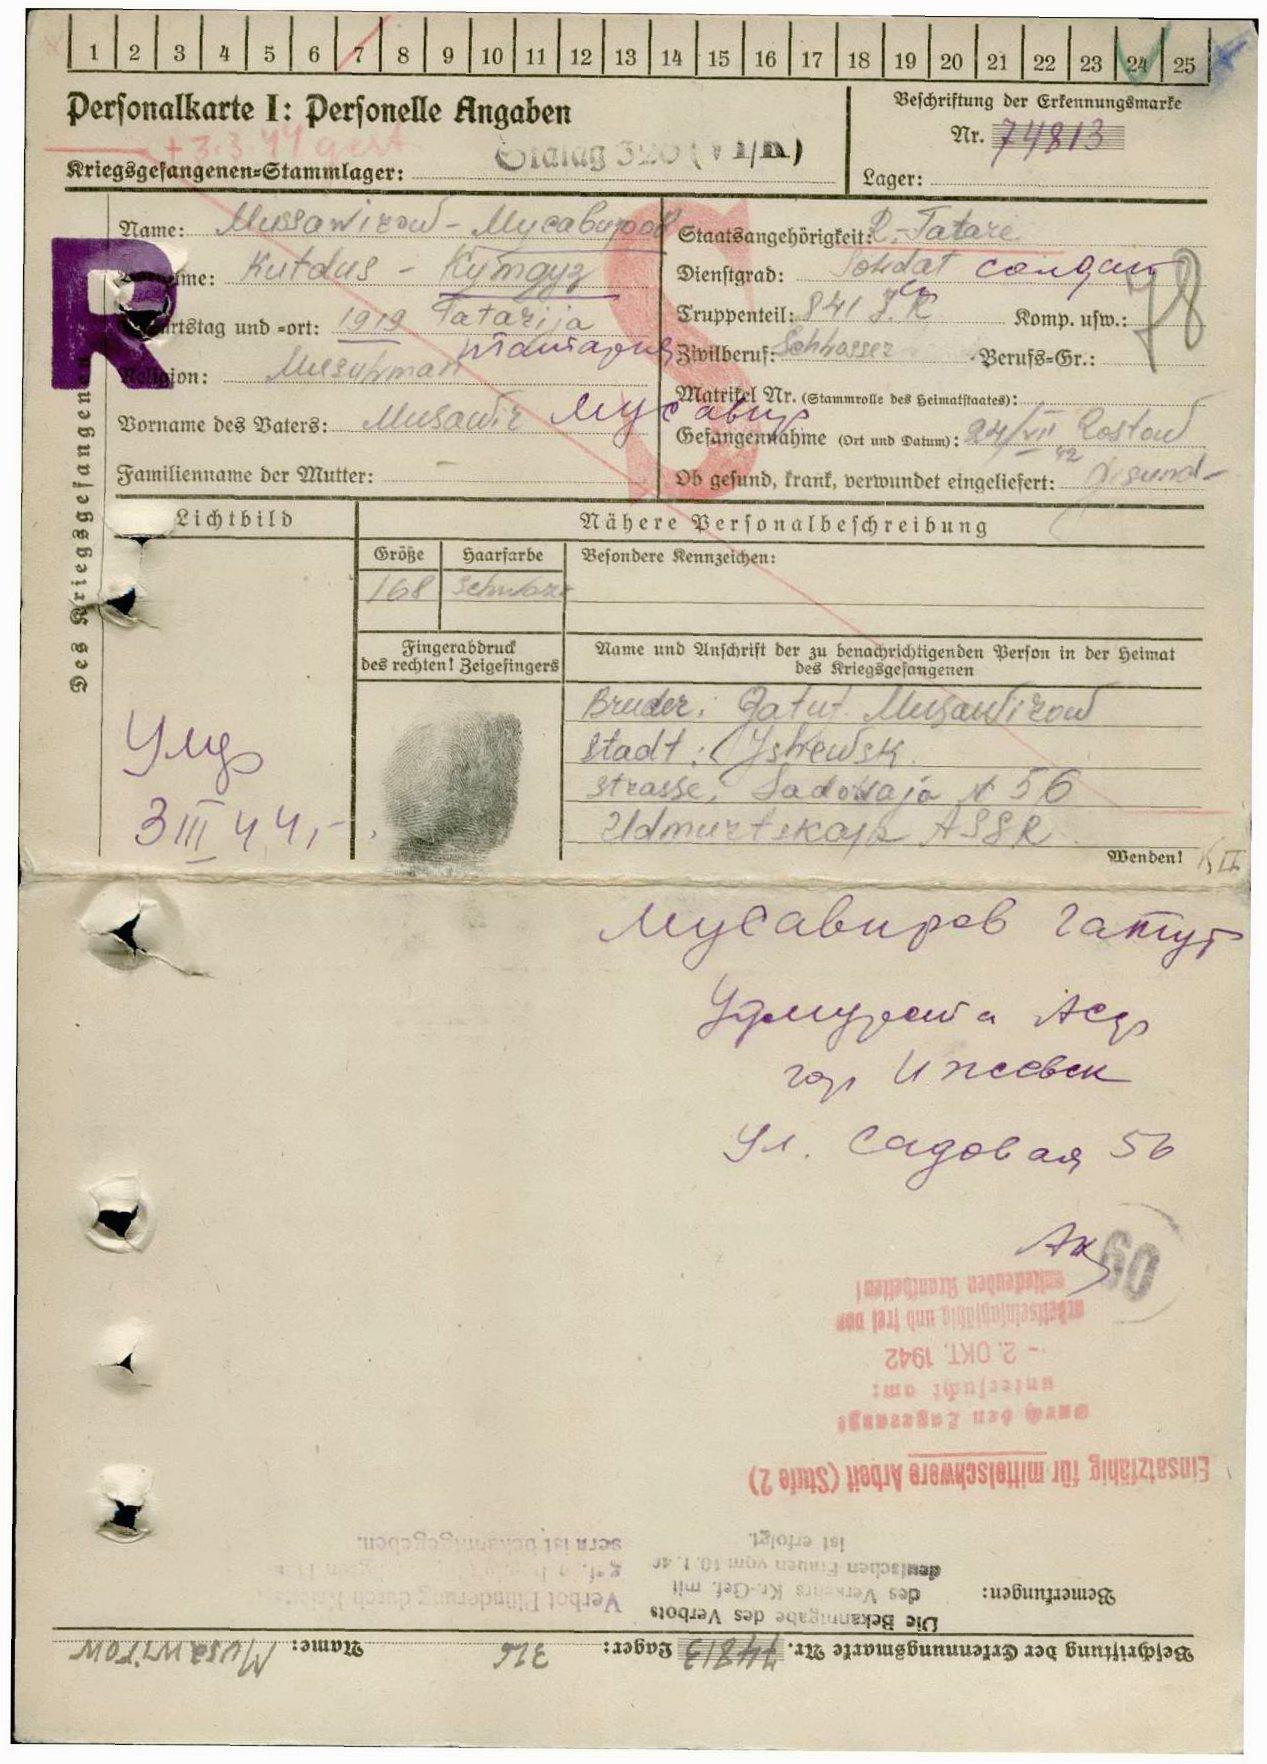 1 2 3 4 5 6 7 8 9 10 11 12 13 14 15 16 17 18 19 20 21 22 23 24 25
Personalkarte I: Personelle Angaben
Beschriftung der Erkennungsmarke
Nr. 74813
+ 3.3.44
Kriegsgefangenen-Stammlager: Stalag 326 (VI/K)
Lager:
Des Kriegsgefangenen
R
S
Name: Mussawirow - Мусавиров
Staatsangehörigkeit: R.-Tatare
Vorname: Kutdus -
Dienstgrad: Soldat солдат
78
Geburtstag und -ort: 1919 Tatarija
Татария
Truppenteil: 841 J.R. Komp. usw.:
Religion: Musulman
Zivilberuf: Schlosser Berufs-Gr.:
Matrikel Nr. (Stammrolle des Heimatstaates):
Vorname des Vaters: Musawir Мусавир
Gefangennahme (Ort und Datum): 24/VII 42 Rostow
Familienname der Mutter: -
Ob gesund, krank, verwundet eingeliefert: gesund-
Lichtbild
Nähere Personalbeschreibung
Größe
Haarfarbe
Besondere Kennzeichen:
168
schwarz
Fingerabdruck
des rechten! Zeigefingers
Name und Anschrift der zu benachrichtigenden Person in der Heimat
des Kriegsgefangenen
Bruder: Gatut Musawirow
Stadt: Ishewsk
Strasse: Sadowaja N 56
Udmurtskaja ASSR
Умер
3 III 44,-
Wenden!
Мусавиров Гатут
Удмурстка АССР
гор Ижевск
Ул. Садовая 56
60
Beschriftung der Erkennungsmarke Nr. 74813 Lager: 326 Name: Musawirow
Bemerkungen:
Die Bekanntgabe des Verbots
des Verkehrs Kr.-Gef. mit
deutschen Frauen vom 10.1.40
ist erfolgt.
Verbot Plünderung durch
sern ist bekanntgegeben.
Einsatzfähig für mittelschwere Arbeit (Stufe 2)
Durch den Lagerarzt
untersucht am:
- 2. OKT. 1942
arbeitseinsatzfähig und frei von
ansteckenden Krankheiten!